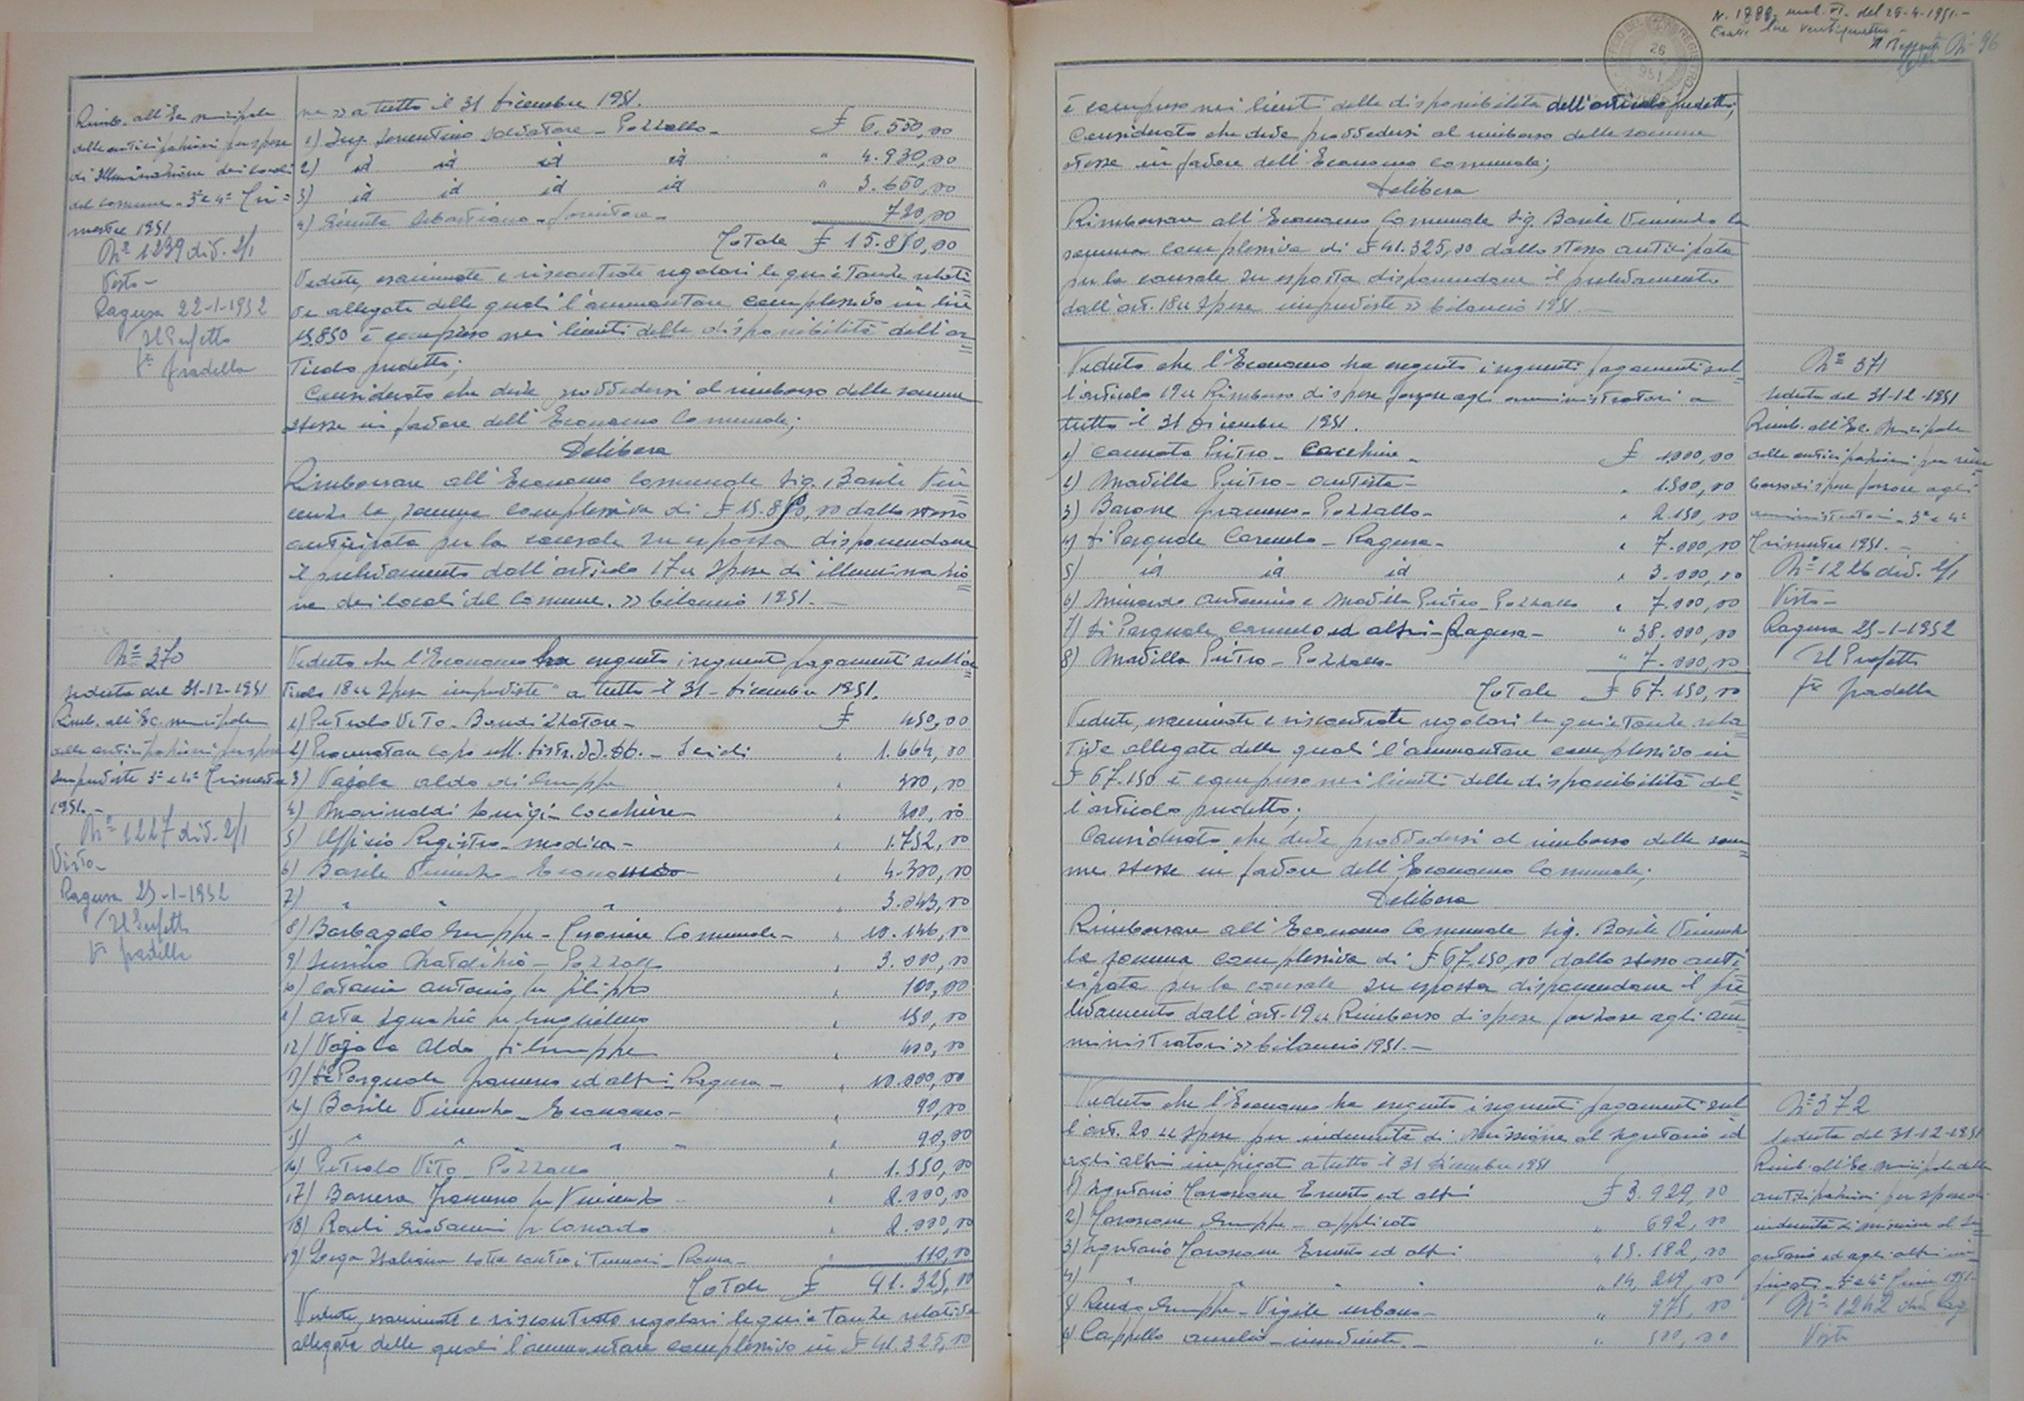 Rimb. all'Ec. municipale
delle anticipazioni per spese
di illuminazione dei locali
del comune - 3° e 4° Tri=
mestre 1951
N° 1239 div. 2/1
Visto -
Ragusa 22-1-1952
Il Prefetto
Fto Gradella
N° 370
seduta del 31-12-1951
Rimb. all'Ec. municipale
delle anticipazioni per spese
impreviste 3° e 4° Trimestre
1951. -
N° 1227 div. 2/1
Visto -
Ragusa 25-1-1952
Il Prefetto
Fto Gradella
ne >> a tutto il 31 dicembre 1951.
1) Ing. Sorrentino Salvatore - Pozzallo - £ 6.550,00
2) id id id id " 4.930,00
3) id id id id " 3.650,00
4) Sebastiano - fornitore - 720,00
Totale £ 15.850,00
Vedute, esaminate e riscontrate regolari le quietanze relati
ve allegate delle quali l'ammontare complessivo in lire
15.850 è compreso nei limiti delle disponibilità dell'ar=
ticolo predetto;
Considerato che deve provvedersi al rimborso delle somme
stesse in favore dell'Economo Comunale;
Delibera
Rimborsare all'Economo Comunale Sig. Basile Vin=
cenzo la somma complessiva di £ 15.850,00 dallo stesso
anticipata per la causale su esposta disponendone
il prelevamento dall'articolo 17 << Spese di illuminazio=
ne dei locali del Comune. >> bilancio 1951. -
Veduto che l'Economo ha eseguito i seguenti pagamenti sull'ar
ticolo 18 << Spese impreviste " a tutto il 31 - dicembre 1951.
1) Petrolo Vito - Banditore - £ 450,00
2) capo uff. distr. II. DD. - Scicli " 1.664,00
3) Vajola Aldo di Giuseppe " 300,00
4) Marinaldi Luigi - Cocchiere - " 200,00
5) Ufficio Registro - Modica - " 1.752,00
6) Basile Vincenzo - Economo " 4.300,00
7) " " " " 3.043,00
8) Barbagallo Giuseppe - Tesoriere Comunale - " 10.146,00
9) - Pozzallo " 3.000,00
10) Catania Antonio fu Filippo " 100,00
11) Arta Ignazio fu Guglielmo " 150,00
12) Vajola Aldo di Giuseppe " 400,00
13) Di Pasquale Francesco ed altri - Ragusa - " 10.000,00
14) Basile Vincenzo - Economo - " 90,00
15) " " " " 90,00
16) Petrolo Vito - Pozzallo " 1.550,00
17) Barrera Francesco fu Vincenzo " 2.000,00
18) Giovanni fu Corrado " 2.000,00
19) Lega Italiana lotta contro i Tumori - Roma - " 110,00
Totale £ 41.325,00
Vedute, esaminate e riscontrate regolari le quietanze relative
allegate delle quali l'ammontare complessivo in £ 41.325,00
N. 1888, mod. VI. del 26-4-1951. -
Esatte lire
N° 96
26
951
è compreso nei limiti delle disponibilità dell'articolo predetto;
Considerato che deve provvedersi al rimborso delle somme
stesse in favore dell'Economo Comunale;
Delibera
Rimborsare all'Economo Comunale Sig. Basile Vincenzo la
somma complessiva di £ 41.325,00 dallo stesso anticipata
per la causale su esposta disponendone il prelevamento
dall'art. 18 << Spese impreviste >> bilancio 1951. -
Veduto che l'Economo ha eseguito i seguenti pagamenti sul=
l'articolo 19 << Rimborso di spese forzose agli amministratori a
tutto il 31 dicembre 1951.
1) Cannata Pietro - Cocchiere - £ 1000,00
2) Modilla Pietro - Autista - " 1500,00
3) Barone Francesco - Pozzallo - " 2.150,00
4) Di Pasquale Carmelo - Ragusa - " 7.000,00
5) id id id " 3.000,00
6) Minardo Antonino e Modilla Pietro - Pozzallo " 7.000,00
7) Di Pasquale Carmelo ed altri - Ragusa - " 38.000,00
8) Modilla Pietro - Pozzallo - " 7.000,00
Totale £ 67.150,00
Vedute, esaminate e riscontrate regolari le quietanze rela=
tive allegate delle quali l'ammontare complessivo in
£ 67.150 è compreso nei limiti delle disponibilità del=
l'articolo predetto;
Considerato che deve provvedersi al rimborso delle som=
me stesse in favore dell'Economo Comunale;
Delibera
Rimborsare all'Economo Comunale Sig. Basile Vincenzo
la somma complessiva di £ 67.150,00 dallo stesso anti
cipata per la causale su esposta disponendone il pre=
levamento dall'art. 19 << Rimborso di spese forzose agli am=
ministratori >> bilancio 1951. -
Veduto che l'Economo ha eseguito i seguenti pagamenti sul
l'art. 20 << Spese per indennità di missione al Segretario ed
agli altri impiegati a tutto il 31 dicembre 1951
1) Segretario Tarascone Ernesto ed altri £ 3.929,00
2) Tarascone Giuseppe - applicato " 692,00
3) Segretario Tarascone Ernesto ed altri " 15.182,00
4) " " " " 14.219,00
5) Giuseppe - Vigile urbano - " 975,00
6) Cappello Aurelio - " 500,00
N° 371
seduta del 31-12-1951
Rimb. all'Ec. Municipale
delle anticipazioni per rim=
borso di spese forzose agli
amministratori - 3° e 4°
Trimestre 1951. -
N° 1226 div. 2/1
Visto -
Ragusa 25-1-1952
Il Prefetto
Fto Gradella
N° 372
Seduta del 31-12-1951
Rimb. all'Ec. municipale delle
anticipazioni per spese di
indennità di missione al Se=
gretario ed agli altri im=
piegati - 3° e 4° Trim. 1951 -
N° 1242 div.
Visto